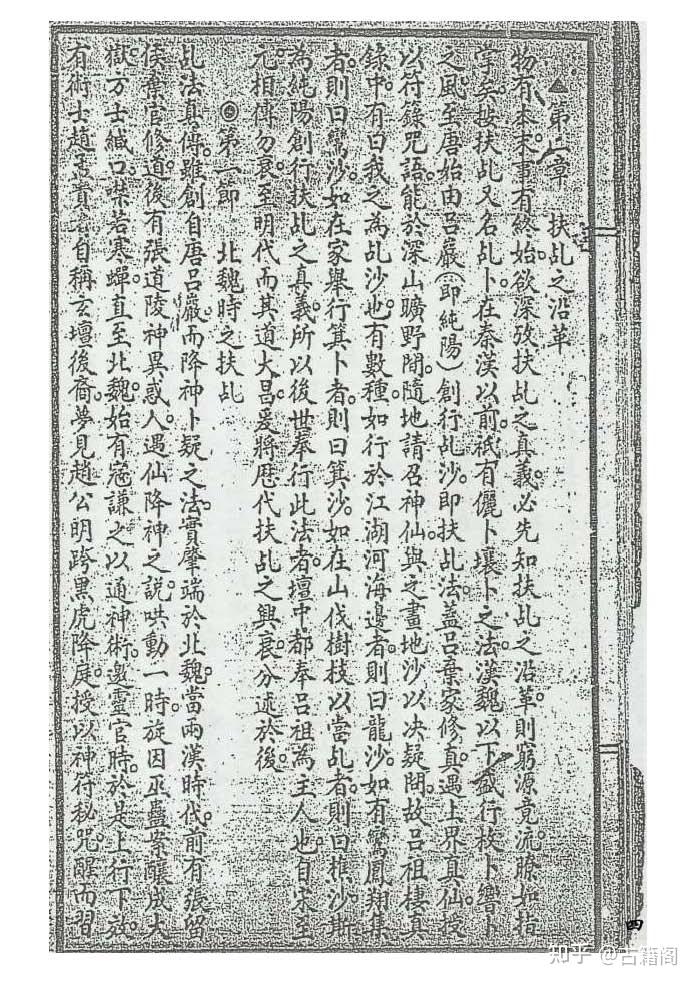 第二章 扶乩之沿革
物有本末事有終始。欲深攷扶乩之真義。必先知扶乩之沿革。則窮源竟流。瞭如指
掌矣。按扶乩又名乩卜。在秦漢以前。祇有儷卜壤卜之法。漢魏以下。盛行枚卜響卜
之風。至唐始由呂巖(即純陽)創行乩沙。即扶乩法。蓋呂棄家修真。遇上界真仙。授
以符籙咒語。能於深山曠野間。隨地請召神仙。與之畫地沙以决疑問。故呂祖棲真
錄中。有曰我之為乩沙也。有數種。如行於江湖河海邊者。則曰龍沙。如有鸞鳳翔集
者。則曰鸞沙。如在家舉行箕卜者。則曰箕沙。如在山伐樹技以當乩者。則曰樵沙。斯
為純陽創行扶乩之真義。所以後世奉行此法者。壇中都奉呂祖為主人也。自宋至
元相傳勿衰。至明代而其道大昌。爰將歷代扶乩之興衰。分述於後。
◎第一節 北魏時之扶乩
乩法真傳。雖創自唐呂巖。而降神卜疑之法。實肇端於北魏。當兩漢時代。前有張留
侯棄官修道。後有張道陵神異惑人。遇仙降神之說。哄動一時。旋因巫蠱案釀成大
獄。方士緘口。噤若寒蟬。直至北魏。始有寇謙之以通神術。邀靈官時。於是上行下效。
有術士趙孟賁者。自稱玄壇後裔。夢見趙公明跨黑虎降庭。授以神符秘咒。醒而習
四
知乎 @古籍阁